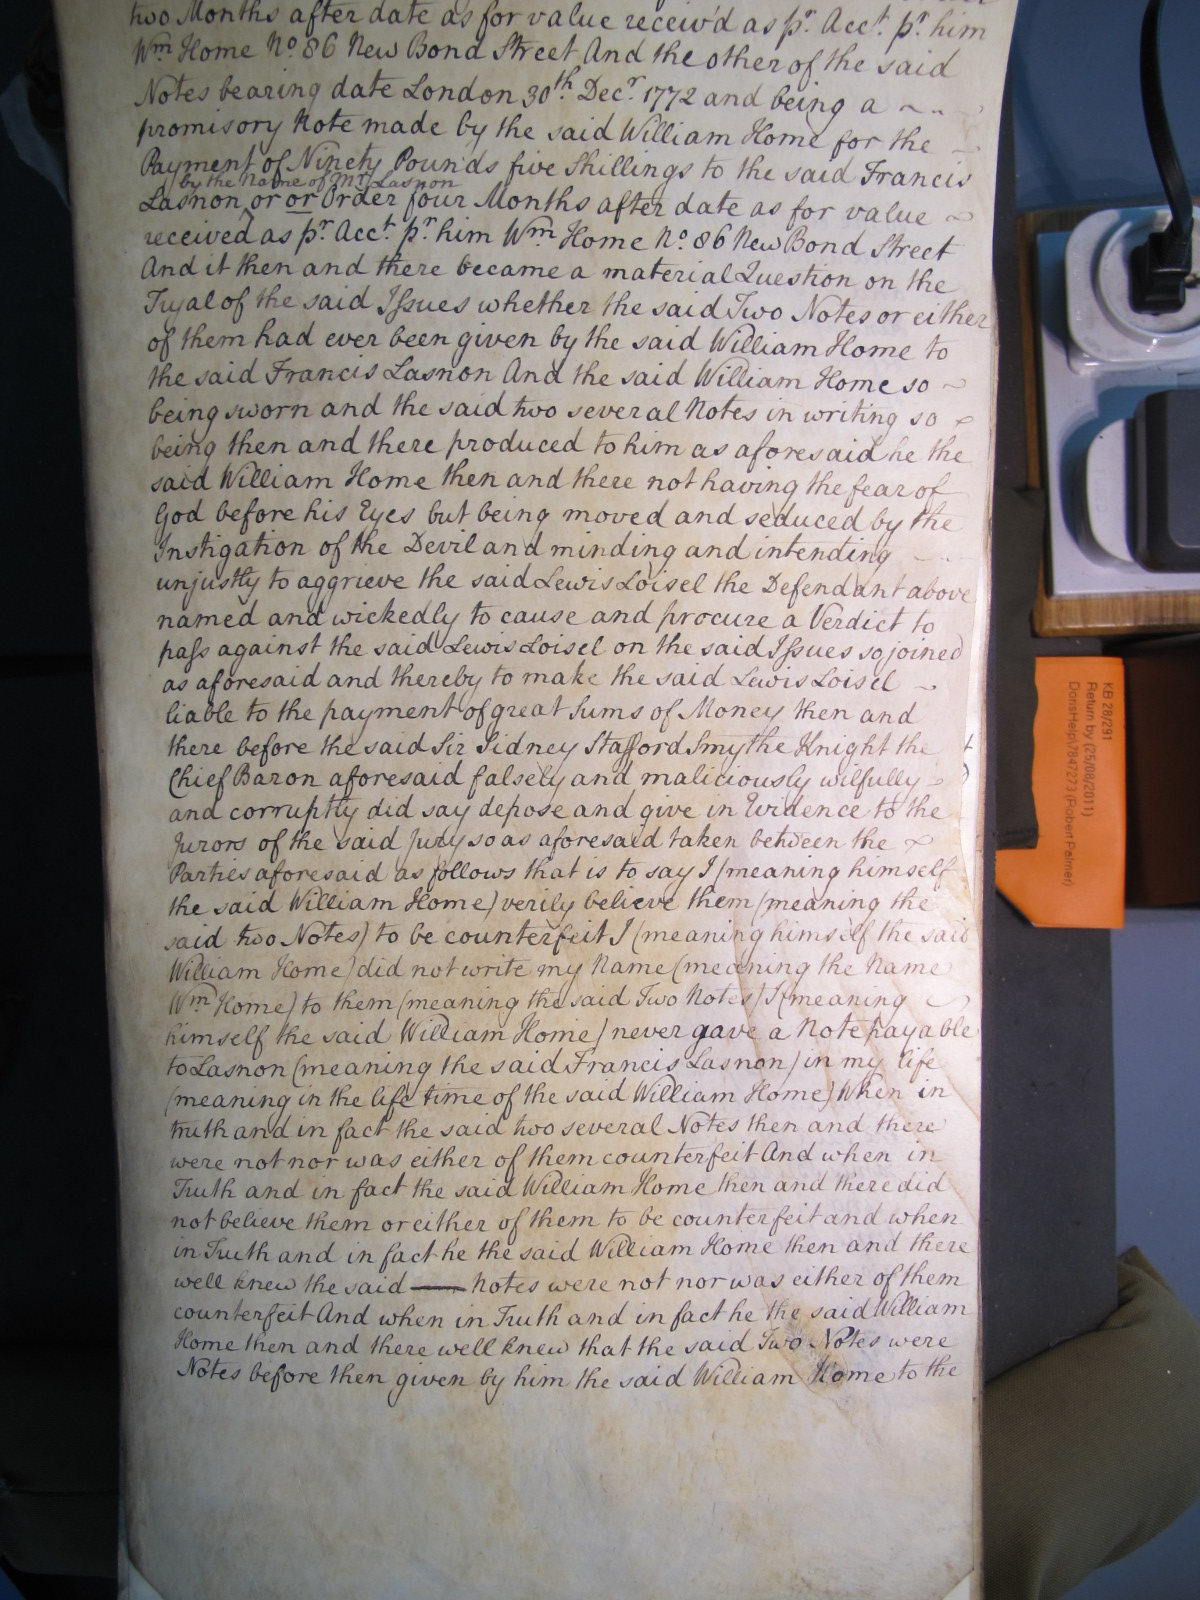 two Months after date as for value receiv'd as pr. Acct. pr. him
Wm Home No. 86 New Bond Street And the other of the said
Notes bearing date London 30th. Decr. 1772 and being a
promisory Note made by the said William Home for the
Payment of Ninety Pounds five Shillings to the said Francis
by the Name of Mr. Lasnon
Lasnon or or Order four Months after date as for value
received as pr. Acct. pr. him Wm Home No. 86 New Bond Street
And it then and there became a material Question on the
Tryal of the said Issues whether the said Two Notes or either
of them had ever been given by the said William Home to
the said Francis Lasnon And the said William Home so
being sworn and the said two several Notes in writing so
being then and there produced to him as aforesaid he the
said William Home then and there not having the fear of
God before his Eyes but being moved and seduced by the
Instigation of the Devil and minding and intending
unjustly to aggrieve the said Lewis Loisel the Defendant above
named and wickedly to cause and procure a Verdict to
pass against the said Lewis Loisel on the said Issues so joined
as aforesaid and thereby to make the said Lewis Loisel
liable to the payment of great Sums of Money then and
there before the said Sir Sidney Stafford Smythe Knight the
Chief Baron aforesaid falsely and maliciously wilfully
and corruptly did say depose and give in Evidence to the
Jurors of the said Jury so as aforesaid taken between the
Parties aforesaid as follows that is to say I (meaning himself
the said William Home) verily believe them (meaning the
said two Notes) to be counterfeit I (meaning himself the said
William Home) did not write my Name (meaning the Name
Wm Home) to them (meaning the said Two Notes) I (meaning
himself the said William Home) never gave a Note payable
to Lasnon (meaning the said Francis Lasnon) in my life
(meaning in the life time of the said William Home) When in
truth and in fact the said two several Notes then and there
were not nor was either of them counterfeit And when in
Truth and in fact the said William Home then and there did
not believe them or either of them to be counterfeit and when
in Truth and in fact he the said William Home then and there
well knew the said Notes were not nor was either of them
counterfeit And when in Truth and in fact he the said William
Home then and there well knew that the said Two Notes were
Notes before then given by him the said William Home to the
KB 28/291
Return by (25/08/2011)
DorisHelp\7847273 (Robert Palmer)